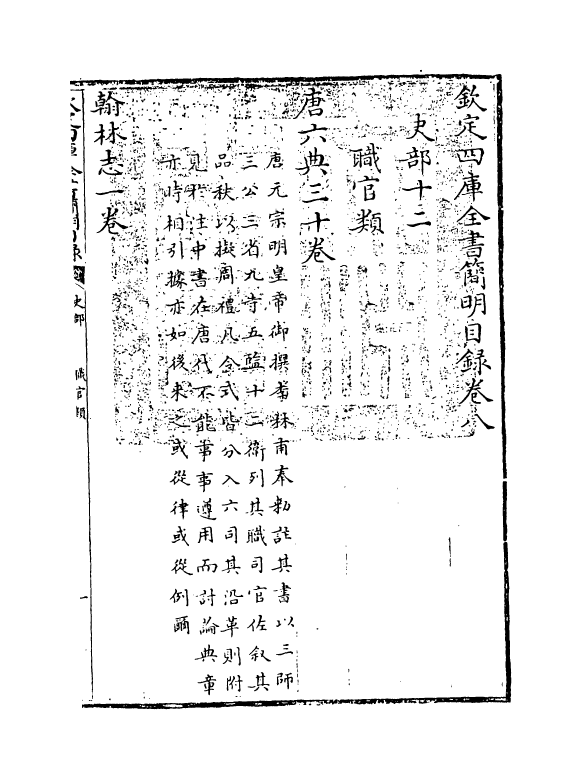 欽定四庫全書簡明目録卷八
史部十二
職官類
唐六典三十卷
唐元宗明皇帝御撰李林甫奉勅註其書以三師
三公三省九寺五監十二衛列其職司官佐叙其
品秩以擬周禮凡令式皆分入六司其沿革則附
見於注中書在唐代不能事事遵用而討論典章
亦時相引據亦如後來之或從律或從例爾
翰林志一卷
史部 職官類
一